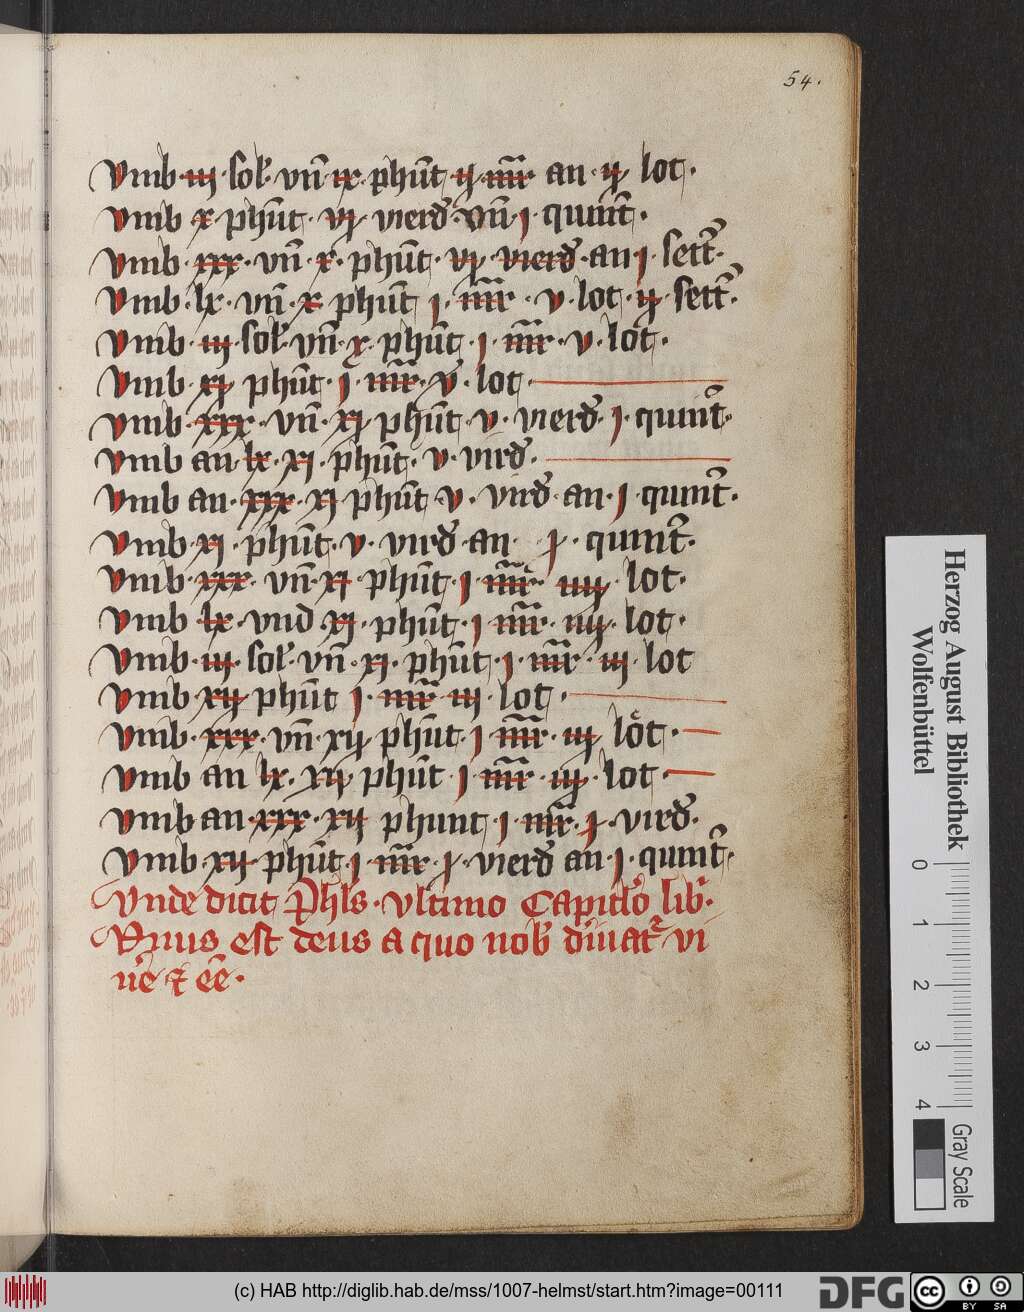 54.
Vmb · iij · sol · vn̄ · ix · phūt · ij · mr̄ an · ij · lot ·
vmb · x · phūt · vj · vierd̉ · vn̄ · j · quint̄ ·
vmb · xxx · vn̄ · x · phūt · vj · vierd̉ · an j · sett̄ ·
vmb · lx · vn̄ · x · phūt j · mr̄ · v · lot · ij · sett̄ ·
vmb · iij · sol · vn̄ · x · phūt · j · mr̄ · v · lot ·
vmb · xj · phūt · j · mr̄ · v · lot ·
vmb · xxx · vn̄ · xj · phūt · v · vierd̉ · j · quint̄ ·
vmb an · lx · xj · phūt · v · vird̉ ·
vmb an · xxx · xj · phūt · v · vird̉ · an · j · quint̄ ·
vmb · xj · phūt · v · vird̉ · an · j · quint̄ ·
vmb · xxx · vn̄ · xj · phūt · j · mr̄ · iiij · lot ·
vmb · lx · vnd · xj · phūt · j · mr̄ · iiij · lot ·
vmb · iij · sol · vn̄ · xj · phūt · j · mr̄ · iij · lot
vmb · xij phūt j · mr̄ · iij · lot ·
vmb · xxx · vn̄ · xij phūt · j · mr̄ · iij · lot ·
vmb an lx · xij phūt j · mr̄ · iij · lot ·
vmb an · xxx · xij phunt j · mr̄ · j · vird̉ ·
vmb · xij · phūt j · mr̄ · j · vierd̉ an · j · quint̄ ·
Vnde dicit Ph̄ls · vltimo Capitl̉o lib̉ ·
est deus a quo nob̉ vi
u̅e ⁊ ēē ·
Herzog August Bibliothek
Wolfenbüttel
0 1 2 3 4
Gray Scale
(c) HAB http://diglib.hab.de/mss/1007-helmst/start.htm?image=00111
DFG
cc
BY SA